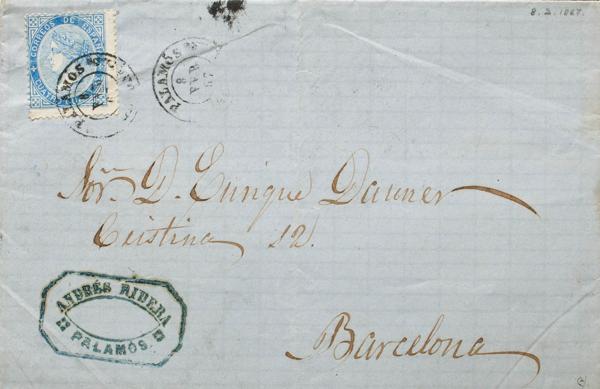 8.2.1867.
CORREOS DE ESPAÑA
CUATRO
PALAMÓS
PALAMÓS
8
67
Sor. D. Enrique Dauner
Cristina 12.
Barcelona
ANDRÉS RIBERA
PALAMÓS